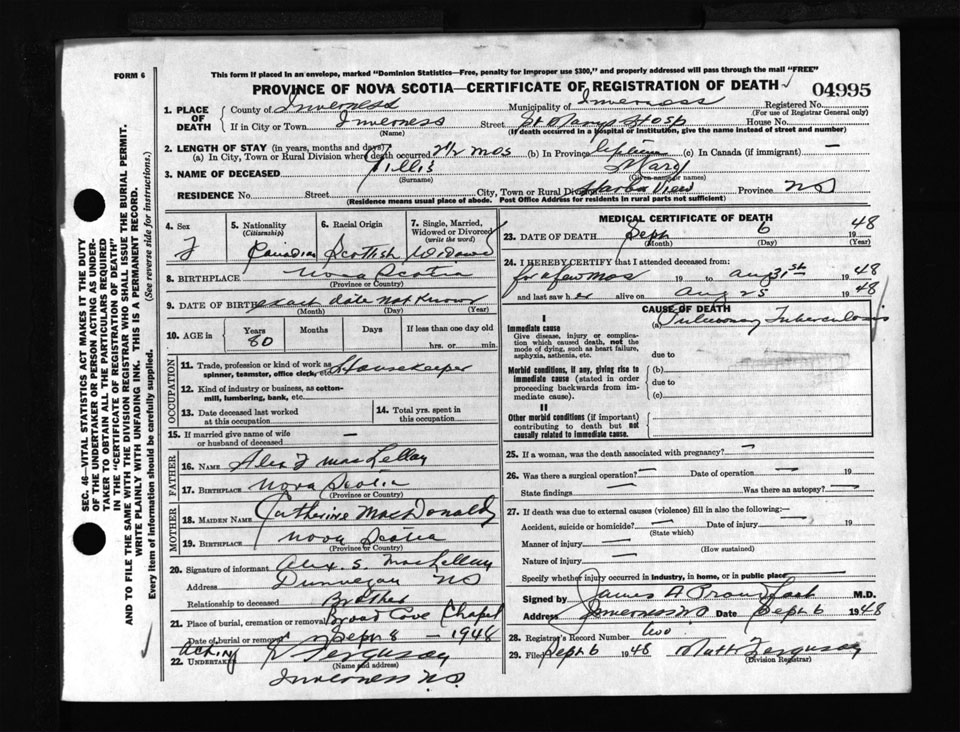 FORM 6
This form if placed in an envelope, marked "Dominion Statistics—Free, penalty for improper use $300," and properly addressed will pass through the mail "FREE"
PROVINCE OF NOVA SCOTIA—CERTIFICATE OF REGISTRATION OF DEATH
04995
1. PLACE OF DEATH
County of Inverness Municipality of Inverness Registered No.
(For use of Registrar General only)
If in City or Town Inverness Street St Marys Hosp House No.
(Name) (If death occurred in a hospital or institution, give the name instead of street and number)
2. LENGTH OF STAY (in years, months and days)
(a) In City, Town or Rural Division where death occurred 2½ mos (b) In Province (c) In Canada (if immigrant) —
3. NAME OF DECEASED Gillis Mary
(Surname) (Given or names)
RESIDENCE No. Street City, Town or Rural Division Harbor View Province NS
(Residence means usual place of abode. Post Office Address for residents in rural parts not sufficient)
4. Sex F
5. Nationality (Citizenship) Canadian
6. Racial Origin Scottish
7. Single, Married, Widowed or Divorced (write the word) Widowed
8. BIRTHPLACE Nova Scotia
(Province or Country)
9. DATE OF BIRTH exact date not known
(Month) (Day) (Year)
10. AGE in Years Months Days If less than one day old
80 hrs. or min.
OCCUPATION
11. Trade, profession or kind of work as spinner, teamster, office clerk, etc. Housekeeper
12. Kind of industry or business, as cotton-mill, lumbering, bank, etc.
13. Date deceased last worked at this occupation
14. Total yrs. spent in this occupation
15. If married give name of wife or husband of deceased —
FATHER
16. NAME Alex F MacLellan
17. BIRTHPLACE Nova Scotia
(Province or Country)
MOTHER
18. MAIDEN NAME Catherine MacDonald
19. BIRTHPLACE Nova Scotia
(Province or Country)
20. Signature of informant Alex. S. MacLellan
Address Dunvegan NS
Relationship to deceased Brother
21. Place of burial, cremation or removal Broad Cove Chapel
Date of burial or removal Sept 8 — 1948
Acting
22. UNDERTAKER Ferguson
(Name and address)
Inverness NS
MEDICAL CERTIFICATE OF DEATH
23. DATE OF DEATH Sept 6 1948
(Month) (Day) (Year)
24. I HEREBY CERTIFY that I attended deceased from:
for a few mos 19 to Aug 31st 1948
and last saw her alive on Aug 25 1948
CAUSE OF DEATH
I
Immediate cause
Give disease, injury or complication which caused death, not the mode of dying, such as heart failure, asphyxia, asthenia, etc.
(a) Pulmonary Tuberculosis
due to
Morbid conditions, if any, giving rise to immediate cause (stated in order proceeding backwards from immediate cause).
(b)
due to
(c)
II
Other morbid conditions (if important) contributing to death but not causally related to immediate cause.
25. If a woman, was the death associated with pregnancy? —
26. Was there a surgical operation? — Date of operation — 19
State findings — Was there an autopsy? —
27. If death was due to external causes (violence) fill in also the following:—
Accident, suicide or homicide? — Date of injury — 19
(State which)
Manner of injury —
(How sustained)
Nature of injury —
Specify whether injury occurred in industry, in home, or in public place
Signed by James A Proudfoot M.D.
Address Inverness NS Date Sept 6 1948
28. Registrar's Record Number two
29. Filed Sept 6 1948 Ferguson
(Division Registrar)
SEC. 46—VITAL STATISTICS ACT MAKES IT THE DUTY
OF THE UNDERTAKER OR PERSON ACTING AS UNDER-
TAKER TO OBTAIN ALL THE PARTICULARS REQUIRED
IN THE "CERTIFICATE OF REGISTRATION OF DEATH"
AND TO FILE THE SAME WITH THE DIVISION REGISTRAR WHO SHALL ISSUE THE BURIAL PERMIT.
WRITE PLAINLY WITH UNFADING INK. THIS IS A PERMANENT RECORD.
Every item of information should be carefully supplied. (See reverse side for instructions.)